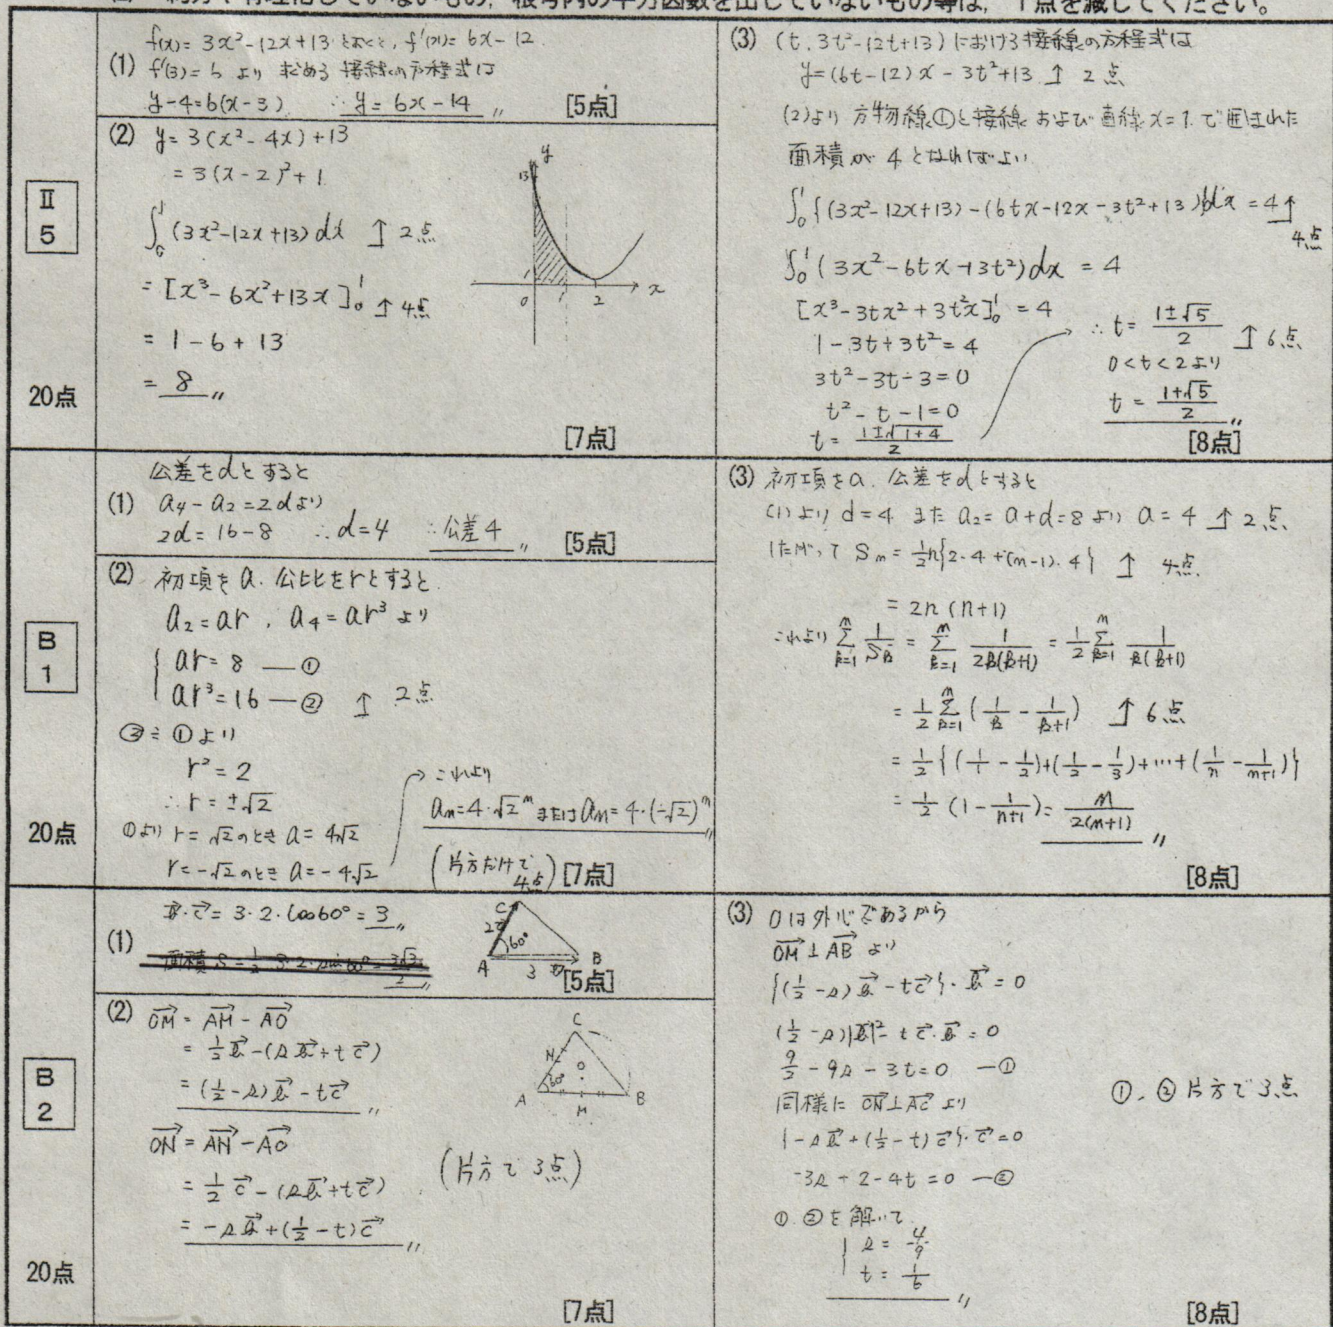 約分や有理化していないもの，根号内の平方因数を出していないもの等は，1点を減じてください。
Ⅱ
5
20点
f(x)= 3x²-12x+13 とおくと, f'(x)= 6x-12.
(1) f'(3)=6 より 求める 接線の方程式は
y-4=6(x-3) ∴ y= 6x-14 〃 [5点]
(2) y= 3(x²-4x)+13
= 3(x-2)²+1
∫₀¹ (3x²-12x+13)dx ↑ 2点
= [x³-6x²+13x]₀¹ ↑ 4点
= 1-6+13
= 8 〃
[7点]
y
13
1
0 1 2 x
(3) (t, 3t²-12t+13) における接線の方程式は
y=(6t-12)x-3t²+13 ↑ 2点
(2)より 方物線①と接線 および 直線 x=1 で囲まれた
面積が 4 となればよい
∫₀¹{(3x²-12x+13)-(6tx-12x-3t²+13)}dx = 4 ↑
4点
∫₀¹(3x²-6tx+3t²)dx = 4
[x³-3tx²+3t²x]₀¹ = 4
1-3t+3t²=4
3t²-3t-3=0
t²-t-1=0
t= (1±√(1+4))/2
∴ t= (1±√5)/2 ↑ 6点
0<t<2より
t = (1+√5)/2 〃
[8点]
B
1
20点
公差をdとすると
(1) a₄-a₂=2dより
2d=16-8 ∴d=4 ∴公差4 〃 [5点]
(2) 初項をa. 公比をrとすると
a₂=ar , a₄=ar³ より
ar=8 —①
ar³=16 —② ↑ 2点
②÷①より
r²=2
∴r=±√2
①より r=√2のとき a=4√2
r=-√2のとき a=-4√2
これより
aₙ=4・√2ⁿ または aₙ=4・(-√2)ⁿ 〃
(片方だけで
4点) [7点]
(3) 初項をa. 公差をdとすると
(1)より d=4 また a₂=a+d=8より a=4 ↑ 2点
したがって Sₙ=½n{2・4+(n-1)・4} ↑ 4点
= 2n(n+1)
これより Σ[k=1,n] 1/Sk = Σ[k=1,n] 1/(2k(k+1)) = ½Σ[k=1,n] 1/(k(k+1))
= ½Σ[k=1,n](1/k - 1/(k+1)) ↑ 6点
= ½{(1/1-1/2)+(1/2-1/3)+…+(1/n-1/(n+1))}
= ½(1-1/(n+1))= n/(2(n+1)) 〃
[8点]
B
2
20点
b⃗・c⃗=3・2・cos60°=3 〃
(1) 面積 S=½・3・2・sin60°=3√3/2 〃
[5点]
C
2 c⃗
60°
A 3 b⃗ B
(2) OM⃗=AM⃗-AO⃗
=½b⃗-(sb⃗+tc⃗)
=(½-s)b⃗-tc⃗ 〃
ON⃗=AN⃗-AO⃗
=½c⃗-(sb⃗+tc⃗)
=-sb⃗+(½-t)c⃗ 〃
(片方で 3点)
[7点]
C
N
O
60°
A M B
(3) Oは外心であるから
OM⃗⊥AB⃗ より
{(½-s)b⃗-tc⃗}・b⃗=0
(½-s)|b⃗|²-tc⃗・b⃗=0
9/2-9s-3t=0 —①
同様に ON⃗⊥AC⃗ より
{-sb⃗+(½-t)c⃗}・c⃗=0
-3s+2-4t=0 —②
①, ②片方で3点
①.②を解いて.
s=4/9
t=1/6 〃
[8点]